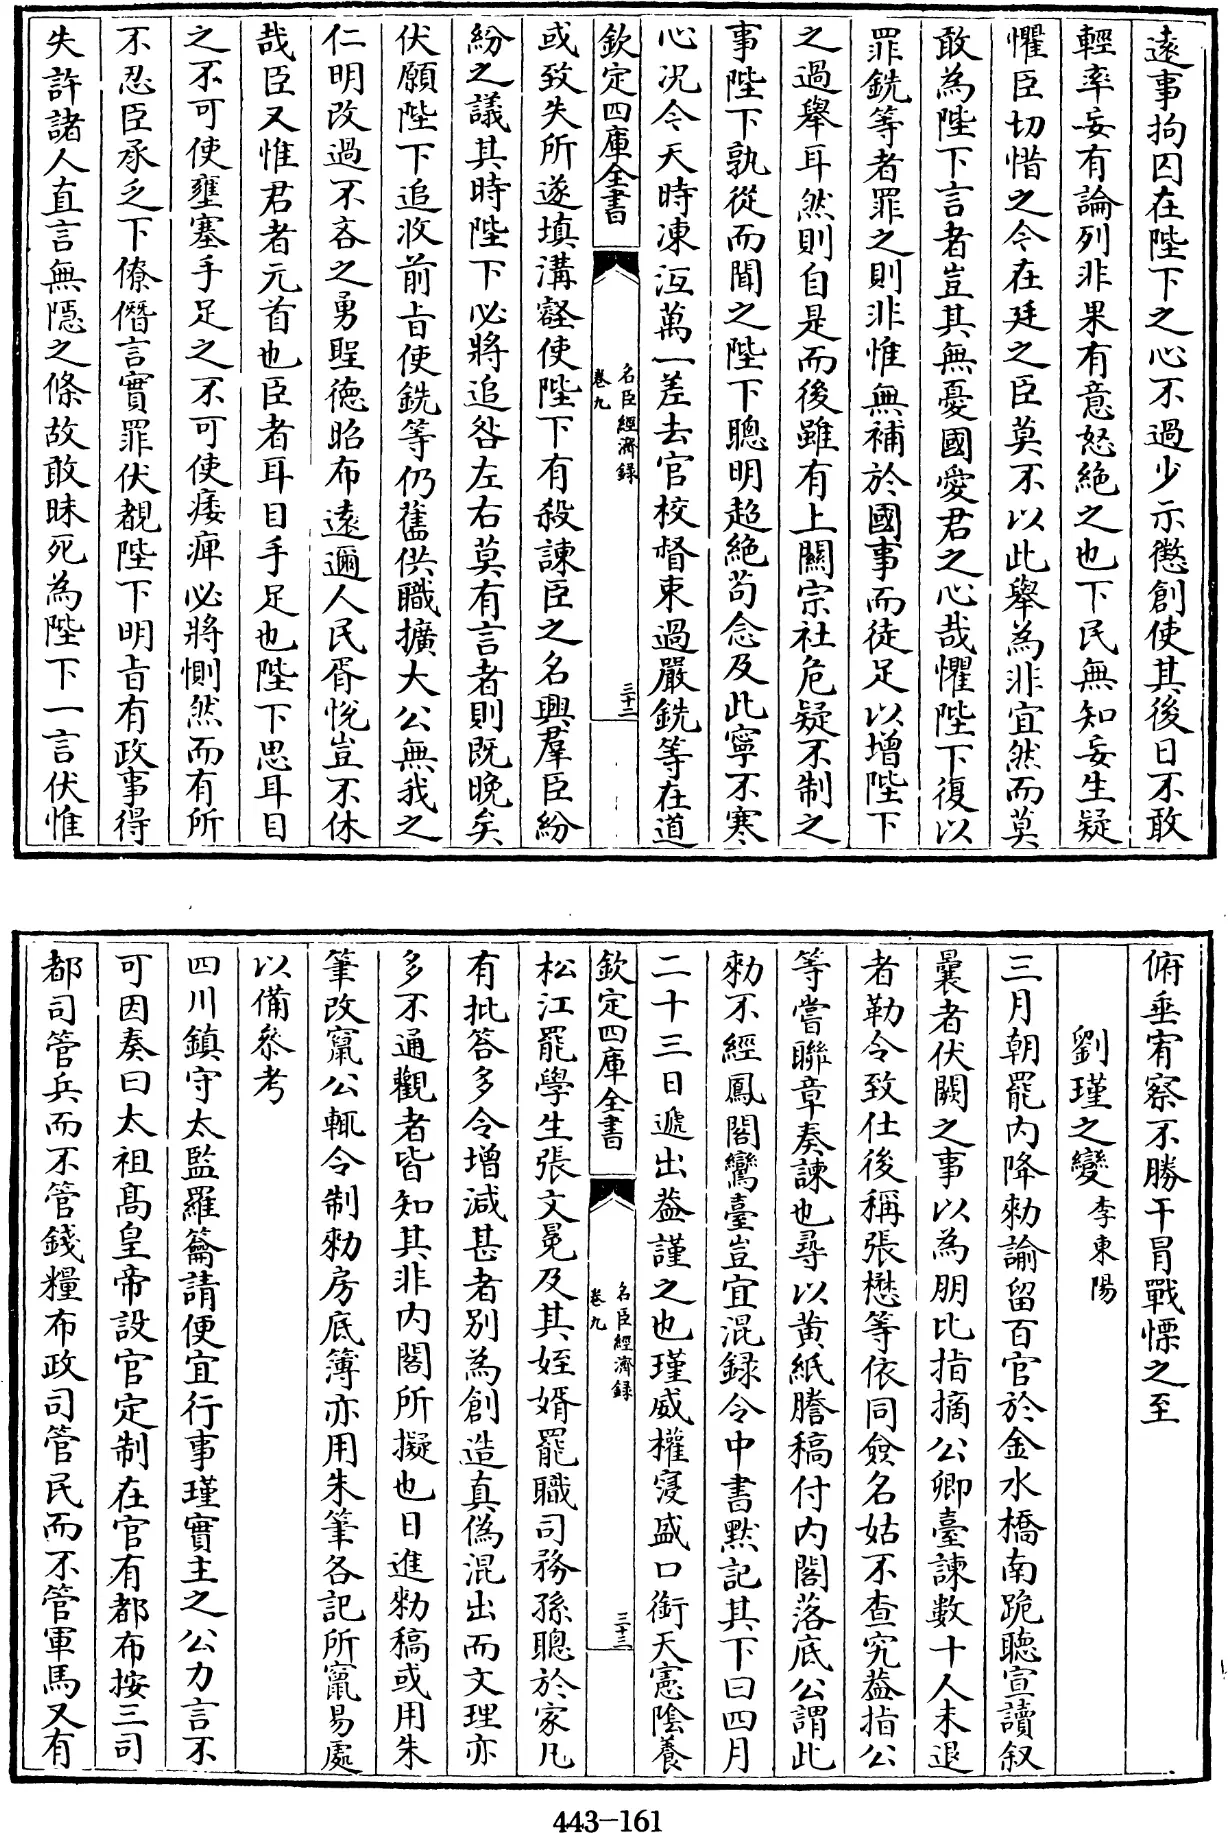 遠事拘囚在陛下之心不過少示懲創使其後日不敢
輕率妄有論列非果有意怒絶之也下民無知妄生疑
懼臣切惜之今在廷之臣莫不以此舉為非宜然而莫
敢為陛下言者豈其無憂國愛君之心哉懼陛下復以
罪銑等者罪之則非惟無補於國事而徒足以增陛下
之過舉耳然則自是而後雖有上關宗社危疑不制之
事陛下孰從而聞之陛下聰明超絶苟念及此寧不寒
心况今天時凍沍萬一差去官校督束過嚴銑等在道
欽定四庫全書
名臣經濟録
卷九
三十二
或致失所遂填溝壑使陛下有殺諫臣之名興羣臣紛
紛之議其時陛下必將追咎左右莫有言者則既晚矣
伏願陛下追收前㫖使銑等仍舊供職擴大公無我之
仁明改過不吝之勇聖德昭布遠邇人民胥悅豈不休
哉臣又惟君者元首也臣者耳目手足也陛下思耳目
之不可使壅塞手足之不可使痿痺必將惻然而有所
不忍臣承乏下僚僭言實罪伏覩陛下明㫖有政事得
失許諸人直言無隱之條故敢昧死為陛下一言伏惟
俯垂宥察不勝干冒戰慄之至
劉瑾之變 李東陽
三月朝罷内降勑諭留百官於金水橋南跪聽宣讀叙
曩者伏闕之事以為朋比指摘公卿臺諫數十人未退
者勒令致仕後稱張懋等依同僉名姑不查究葢指公
等嘗聯章奏諫也尋以黄紙謄稿付内閣落底公謂此
勑不經鳳閣鸞臺豈宜混録令中書黙記其下曰四月
二十三日遞出葢謹之也瑾威權寖盛口銜天憲隂養
欽定四庫全書
名臣經濟録
卷九
三十三
松江罷學生張文冕及其姪婿罷職司務孫聰於家凡
有批答多令增減甚者别為創造真偽混出而文理亦
多不通觀者皆知其非内閣所擬也日進勑稿或用朱
筆改竄公輒令制勑房底簿亦用朱筆各記所竄易處
以備叅考
四川鎮守太監羅籥請便宜行事瑾實主之公力言不
可因奏曰太祖髙皇帝設官定制在官有都布按三司
都司管兵而不管錢糧布政司管民而不管軍馬又有
443-161